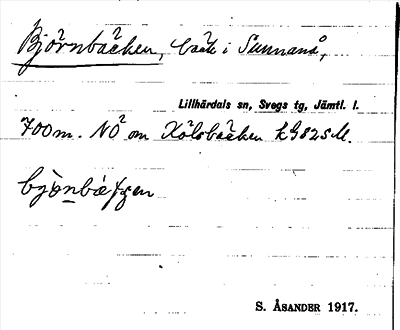 Björnbäcken, bäck i Sunnanå,
Lillhärdals sn, Svegs tg, Jämtl. l.
700 m. NÖ om Kölsbäcken
bjö̀nbæ̀ʃʃen
S. ÅSANDER 1917.